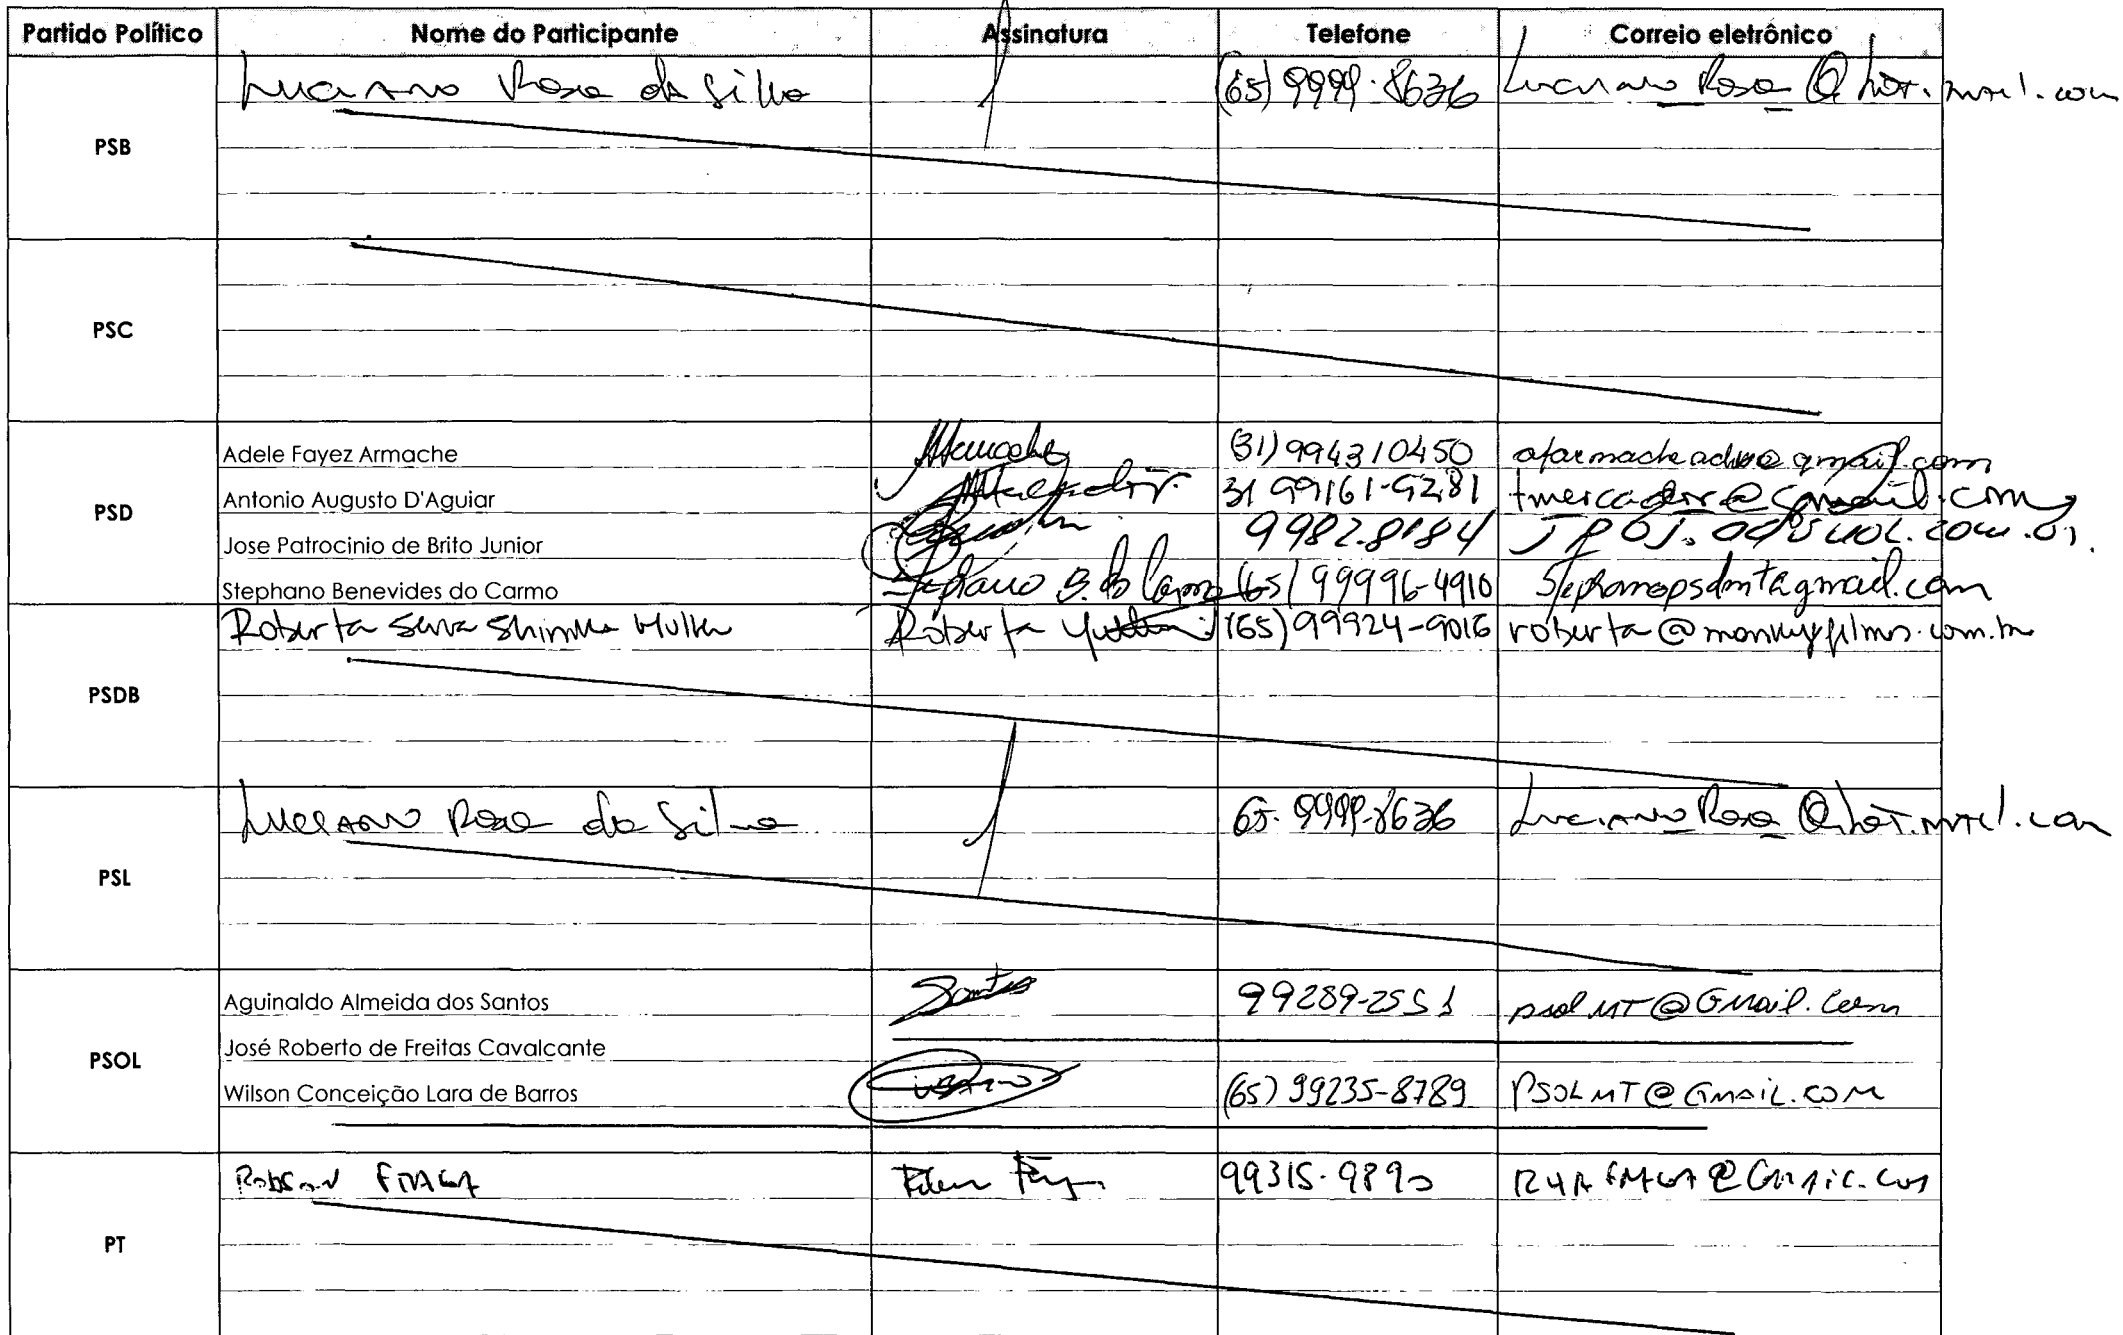 Partido Político Nome do Participante Assinatura Telefone Correio eletrônico
Luciano Rosa da Silva (65) 9999-8636 Luciano_Rosa_@hot.mail.com
PSB
PSC
Adele Fayez Armache (31) 994310450
Antonio Augusto D'Aguiar 31 99161-9281 tmercador@gmail.com
PSD
Jose Patrocinio de Brito Junior 9982.8184
Stephano Benevides do Carmo Stephano B. do Carmo (65) 99996-4910 Stephanopsdmt@gmail.com
Roberta Roberta (65) 99924-9016
PSDB
Luciano Rosa da Silva 65. 9999-8636 Luciano_Rosa_@hot.mail.com
PSL
Aguinaldo Almeida dos Santos Santos 99289-2551 psolMT@Gmail.com
José Roberto de Freitas Cavalcante
PSOL
Wilson Conceição Lara de Barros (65) 99235-8789 PSOLMT@GMAIL.COM
Robson Fraga 99315-9890
PT